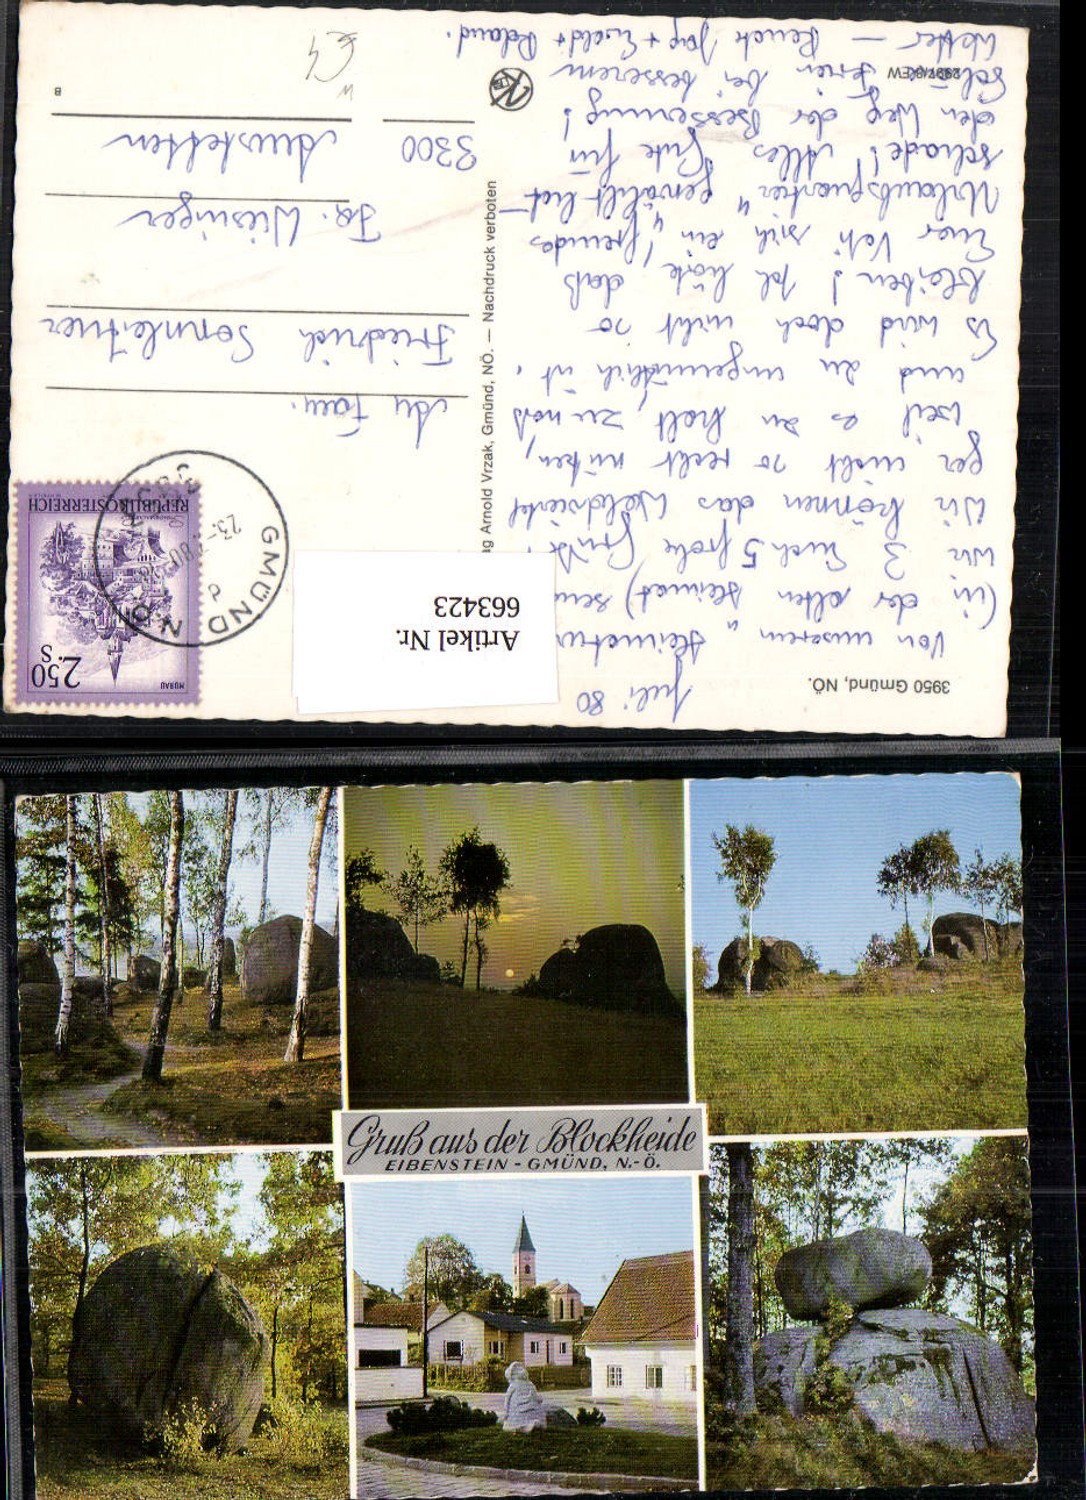 3950 Gmünd, NÖ.
Juli 80
Von unserem "Heimatur
(in der alten Heimat) sen
wir 3 Euch 5 frohe Grüße!
Wir können das Waldviertel
gar nicht so recht nützen,
weil es zu kalt, zu naß
und zu ungemütlich ist.
Es wird doch nicht so
bleiben! Ich höre, daß
Euer Vati sich ein "fremdes
Urlaubsquartier" gewählt hat –
schade! Alles Gute für
den Weg der Besserung!
Schöne Ferien bei besserem
Wetter –
+ Roland.
ag Arnold Vrzak, Gmünd, NÖ. — Nachdruck verboten
Artikel Nr.
663423
MURAU
2.50
S
REPUBLIK ÖSTERREICH
GMÜND N.Ö.
An Fam.
Friedrich Sonnleitner
Fa. Wiesinger
3300 Amstetten
B
€4
Gruß aus der Blockheide
EIBENSTEIN - GMÜND, N.-Ö.